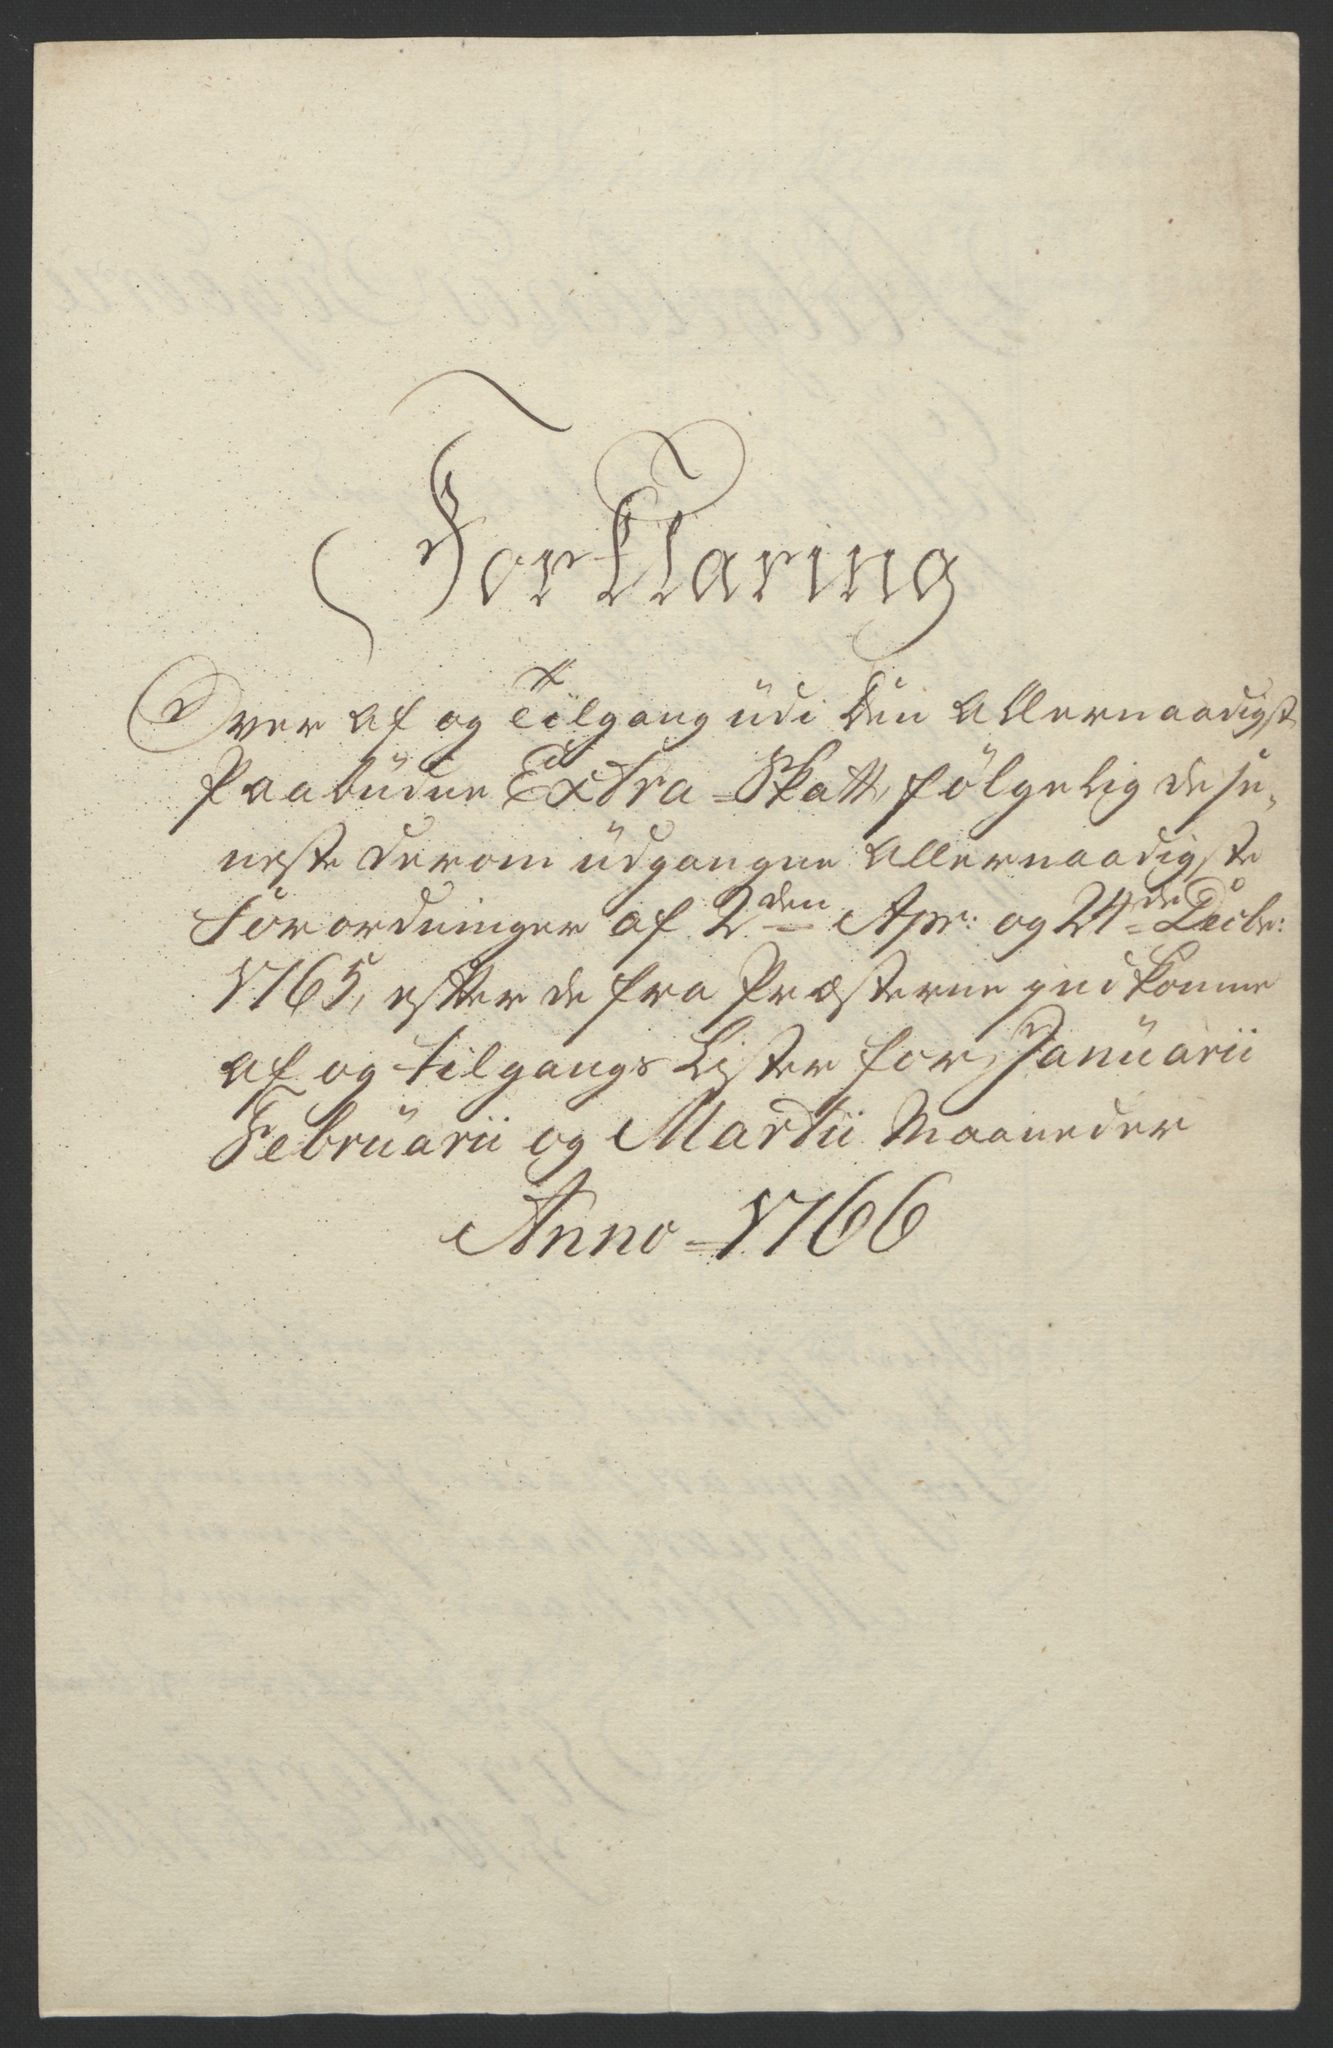 Forklaring
Over af og Tilgang üdi den allernaadigst
Paabüdne Extra-Skatt, følgelig de se-
neste derom üdgangne allernaadigste
Forordninger af 2den Apr: og 24de Decbr:
1765, efter de fra Præsterne indkomne
af og tilgangs Lister for Janüarii
Febrüarii og Martii Maaneder
Anno-1766